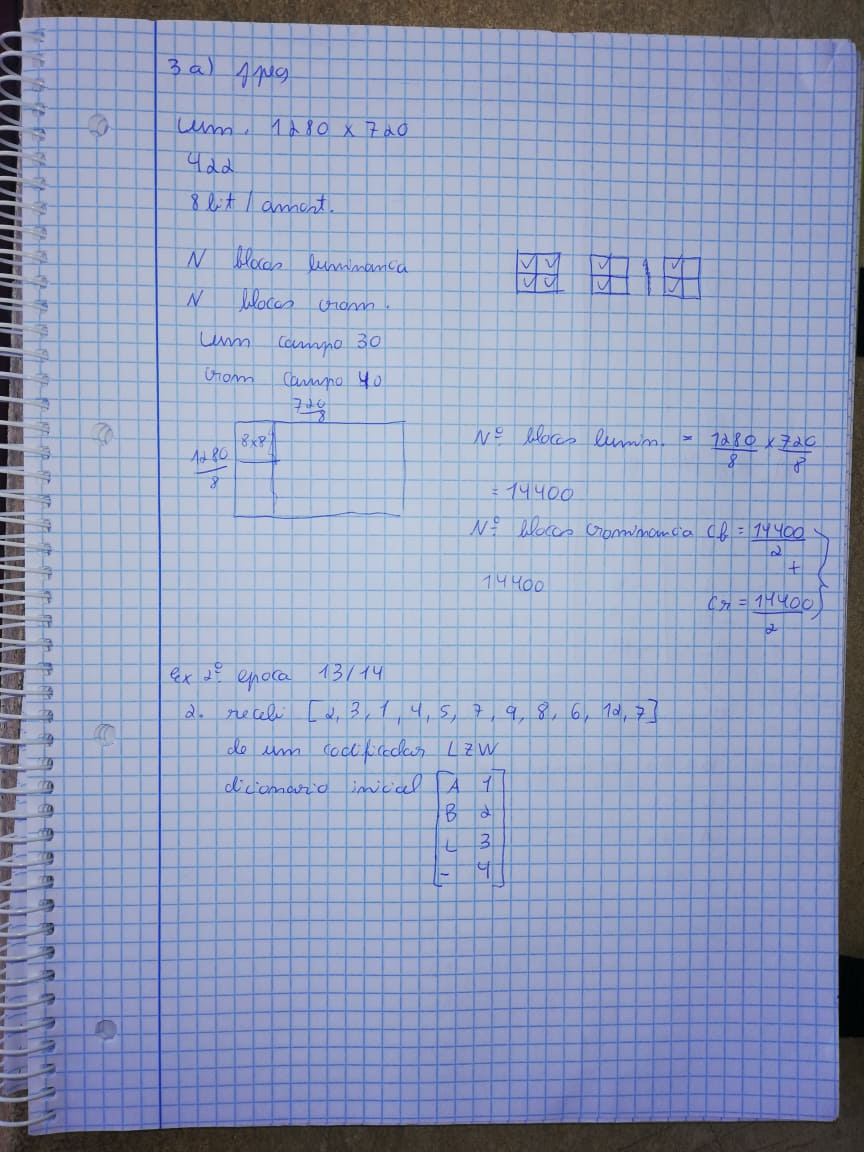 3 a) jpeg
Lum. 1280 x 720
422
8 bit / amost.
N blocos luminancia
N blocos crom.
Lum campo 30
Crom campo 40
720/8
8x8
1280/8
Nº blocos lumin. = 1280/8 x 720/8
= 14400
Nº blocos crominancia Cb = 14400/2
+
14400
Cr = 14400/2
Ex 2º epoca 13/14
2. recebi [2, 3, 1, 4, 5, 7, 9, 8, 6, 12, 7]
de um codificador LZW
dicionario inicial [A 1
B 2
L 3
- 4]